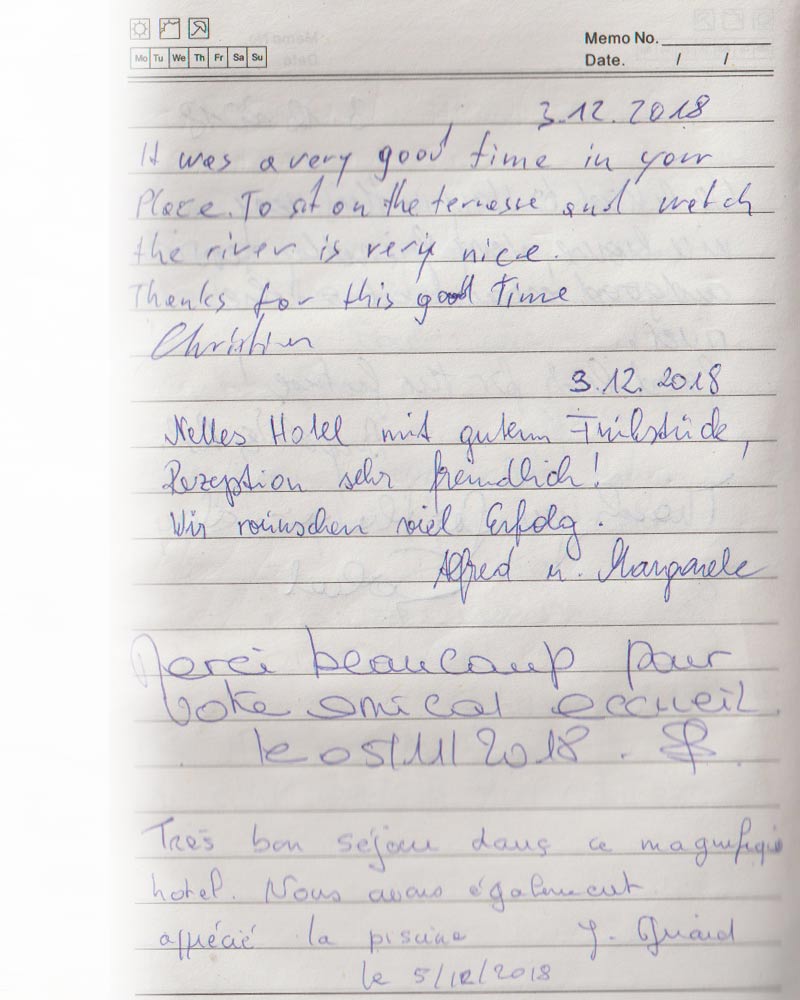 Memo No.
Mo Tu We Th Fr Sa Su
Date. / /
3.12.2018
It was a very good time in your
Place. To sit on the terrasse and watch
the river is very nice.
Thanks for this good time
Christian
3.12.2018
Nettes Hotel mit gutem Frühstück,
Rezeption sehr freundlich!
Wir wünschen viel Erfolg.
Alfred u. Margarete
Merci beaucoup pour
Votre amical accueil
le 05/11/2018.
Très bon séjour dans ce magnifique
hotel. Nous avons également
apprécié la piscine J.
le 5/12/2018